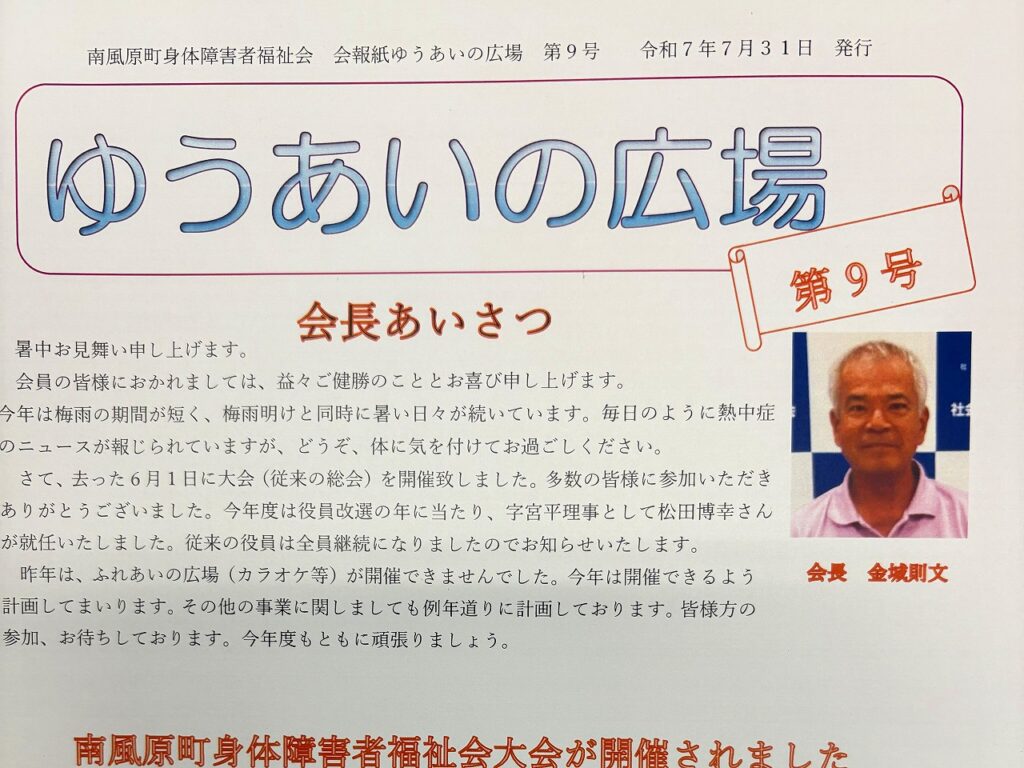 南風原町身体障害者福祉会　会報紙ゆうあいの広場　第９号　　令和７年７月３１日　発行
ゆうあいの広場
第９号
会長あいさつ
暑中お見舞い申し上げます。
会員の皆様におかれましては、益々ご健勝のこととお喜び申し上げます。
今年は梅雨の期間が短く、梅雨明けと同時に暑い日々が続いています。毎日のように熱中症
のニュースが報じられていますが、どうぞ、体に気を付けてお過ごしください。
さて、去った６月１日に大会（従来の総会）を開催致しました。多数の皆様に参加いただき
ありがとうございました。今年度は役員改選の年に当たり、字宮平理事として松田博幸さん
が就任いたしました。従来の役員は全員継続になりましたのでお知らせいたします。
昨年は、ふれあいの広場（カラオケ等）が開催できませんでした。今年は開催できるよう
計画してまいります。その他の事業に関しましても例年道りに計画しております。皆様方の
参加、お待ちしております。今年度もともに頑張りましょう。
社会
会長　金城則文
南風原町身体障害者福祉会大会が開催されました